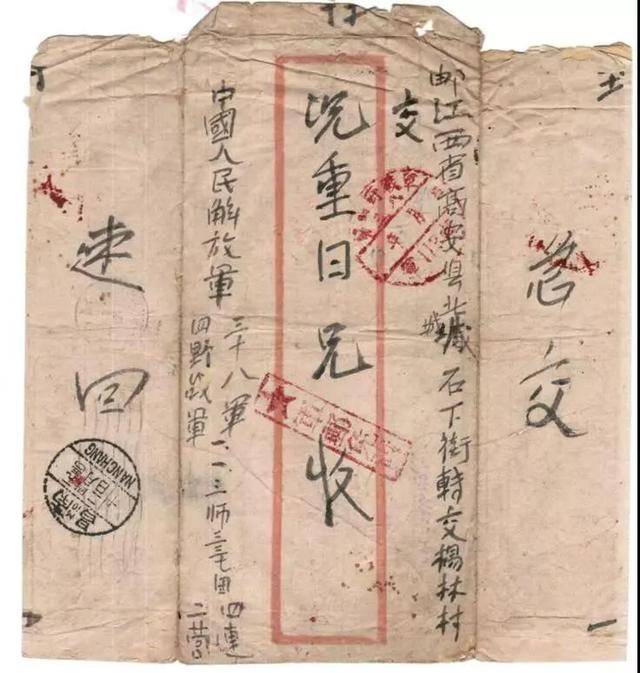 急交
邮江西省高安县北城石下街转交楊林村
城
交
况重日兄收
中國人民解放軍三十八軍一一三师三三七团四連
四野战軍
二营
速回
南昌
NANCHANG